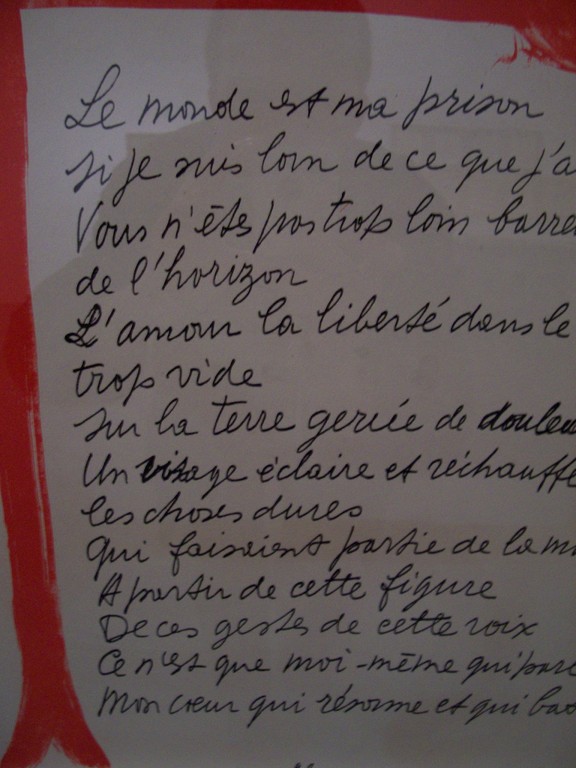 Le monde est ma prison
Si je suis loin de ce que j'a
Vous n'êtes pas trop loin barre
de l'horizon
L'amour la liberté dans le
trop vide
Sur la terre gercée de douleu
Un visage éclaire et réchauffe
les choses dures
Qui faisaient partie de la m
A partir de cette figure
De ces gestes de cette voix
Ce n'est que moi-même qui par
Mon cœur qui résonne et qui ba